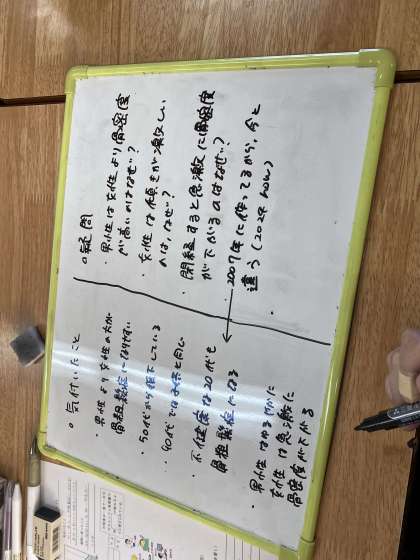 ○気付いたこと
・男性より女性の方が
骨粗鬆症になりやすい
・50代から低下している
・40代では男女と同じ
・不健康な20代も
骨粗鬆症になる
・男性はゆるやかに
女性は急激に
骨密度が下がる
○疑問
・男性は女性より骨密度
が高いのはなぜ?
・女性は傾きが激しい
のは、なぜ?
・閉経すると急激に骨密度
が下がるのはなぜ?
・2007年に作ってるから、今と
違う(2024 now)